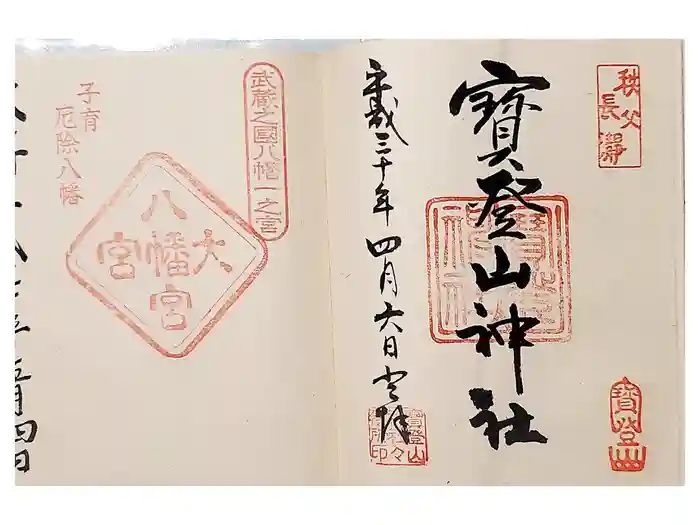 秩父
長瀞
寳登山神社
寳登山
平成三十年四月六日登拝
武蔵之國八幡一之宮
子育
厄除八幡
大
八幡宮
宮
五月四日